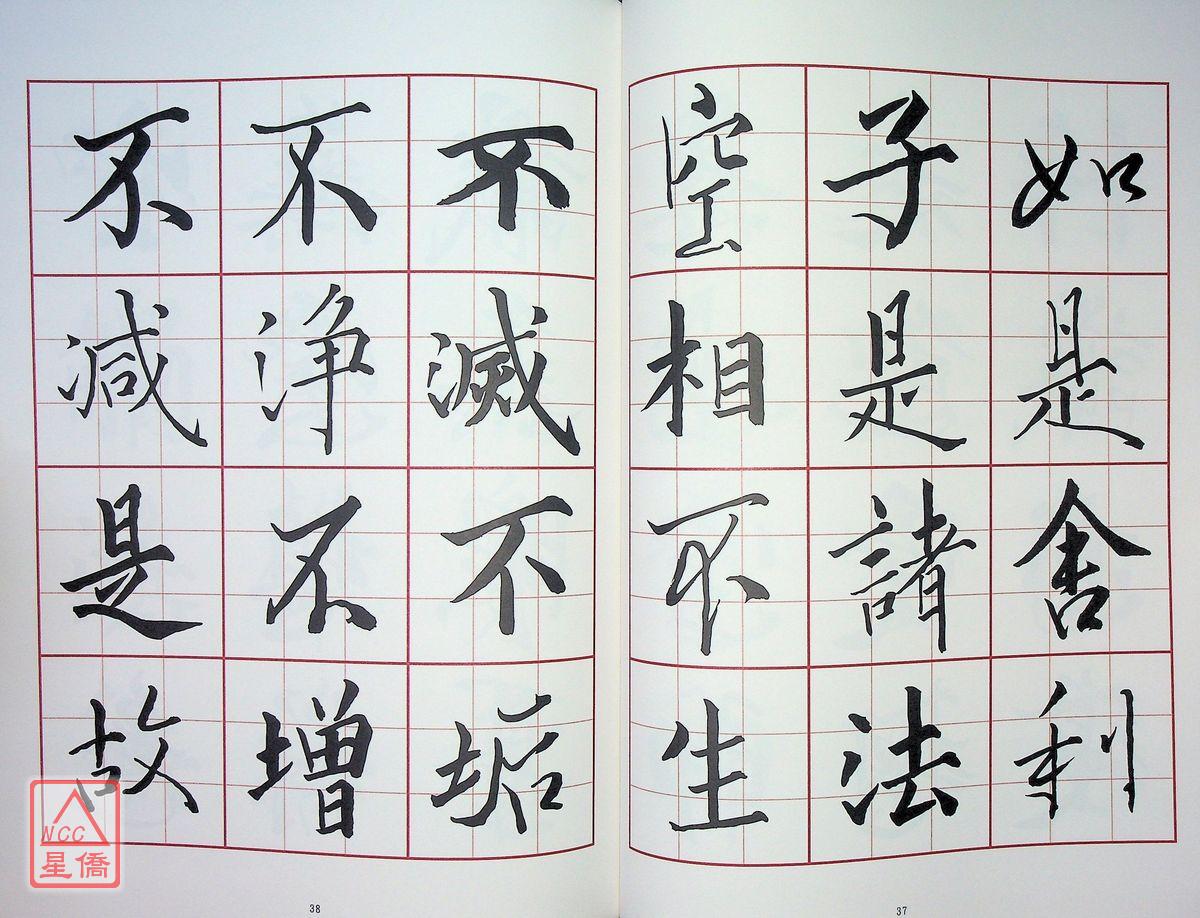 如是舍利
子是諸法
空相不生
不滅不垢
不淨不增
不減是故
37
38
NCC
星僑